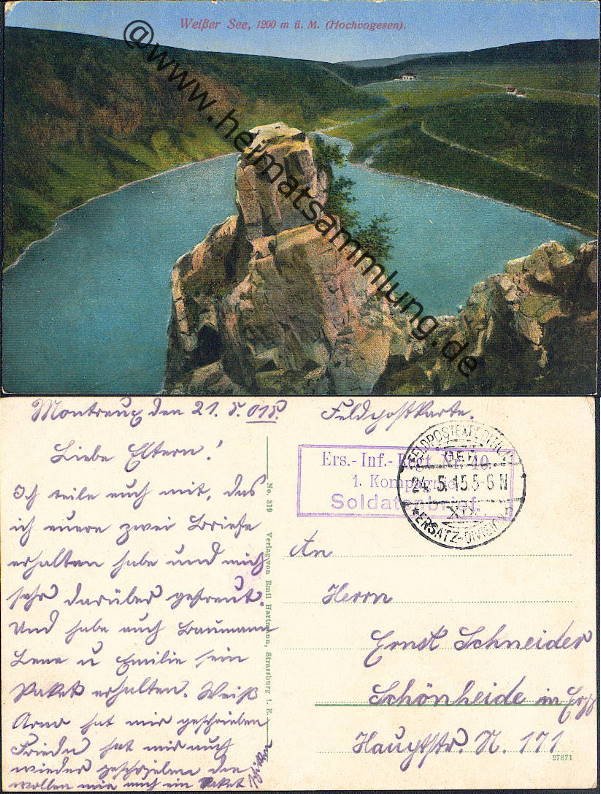 Weißer See, 1200 m ü. M. (Hochvogesen).
@www.heimatsammlung.de
Montreux den 21. 5. 015.
Liebe Eltern!
Ich teile euch mit, das
ich euere zwei Briefe
erhalten habe und mich
sehr darüber gefreut.
Und habe auch Baumann
Lene u Emilie sein
Paket erhalten. Weiß
hat mir geschrieben
Frieda hat mir auch
wieder geschrieben die
wollen mir auch ein Paket
schicken
No. 319 Verlag von Emil Hartmann, Strassburg i. E.
Feldpostkarte.
Ers.-Inf.-Regt. 40.
1. Kompagnie
Soldatenbrief.
FELDPOSTEXPEDITION
DER
24. 5. 15. 5-6 N
XIX
* ERSATZ-DIVISION *
An
Herrn
Ernst Schneider
Schönheide im Erzg
Hauptstr. N. 171
27871